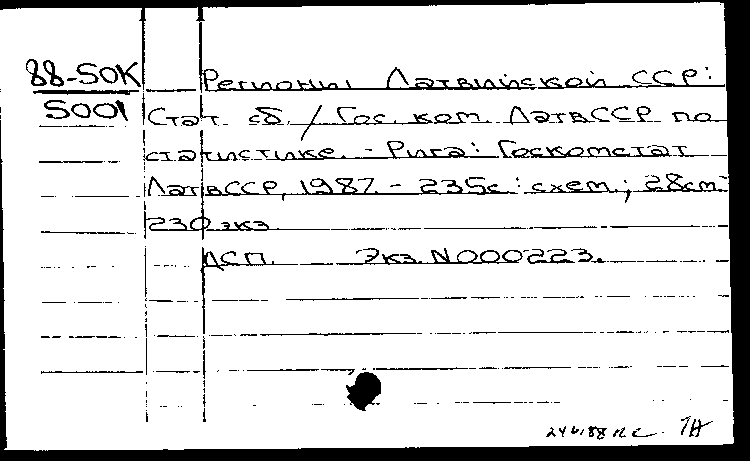 88-50К Регионы Латвийской ССР:
5001 Стат. сб. / Гос. ком. ЛатвССР по
статистике. - Рига: Госкомстат
ЛатвССР, 1987. - 235с.: схем.; 28см. -
230 экз.
ДСП. Экз. N000223.